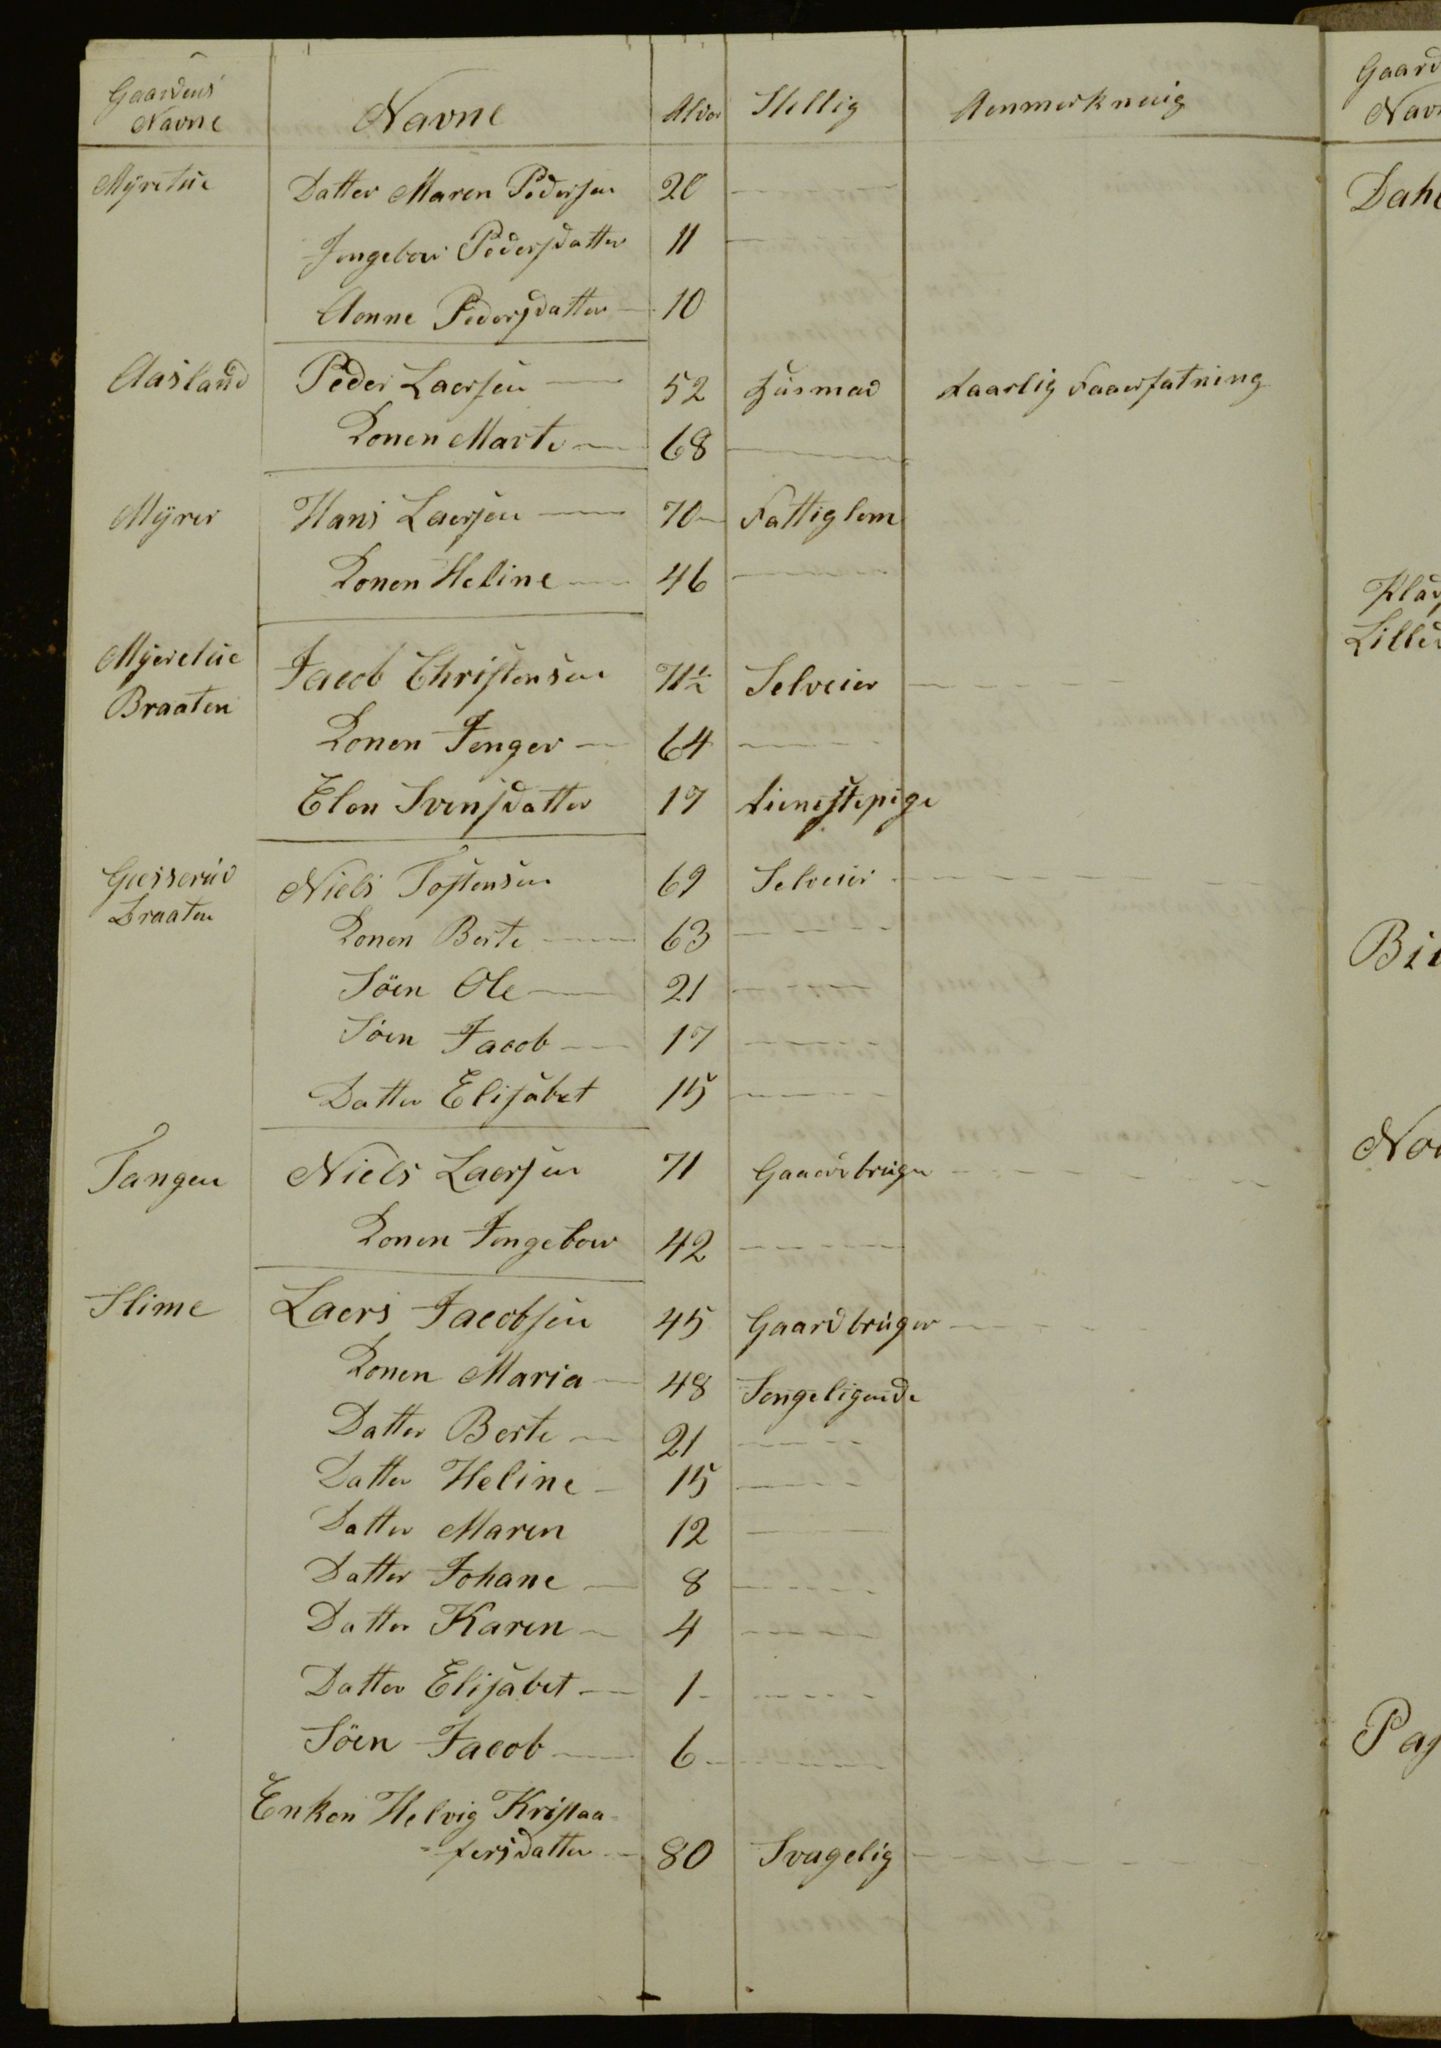 Gaardens Navne Navne Alder Stellig Aenmerkning
Myretue Datter Maren Pedersen 20
Jngebor Pedersdatter 11
Aenne Pedersdatter 10
Aasland Peder Laersen 52 Husmad daarlig Faaerfatning
Konen Marte 68
Myrer Hans Laersen 70 Fattiglem
Konen Heline 46
Myeretue Jacob Christensen 71½ Selveier
Braaten Konen Jenger 64
Elen Svensdatter 17 tienestepige
Niels Tostensen 69 Selveier
Braaten Konen Berte 63
Söen Ole 21
Söen Jacob 17
Datter Elisabet 15
Tangen Niels Laersen 71 Gaardbruger
Konen Jngebor 42
Slime Laers Jacobsen 45 Gaardbruger
Konen Maria 48 Sengeligende
Datter Berte 21
Datter Heline 15
Datter Maren 12
Datter Johane 8
Datter Karen 4
Datter Elisabet 1
Söen Jacob 6
Enken Helvig Kristaa
fersdatter 80 Svagelig
Gaard
Nav
Dahl
Lille
Bi
No
Pag